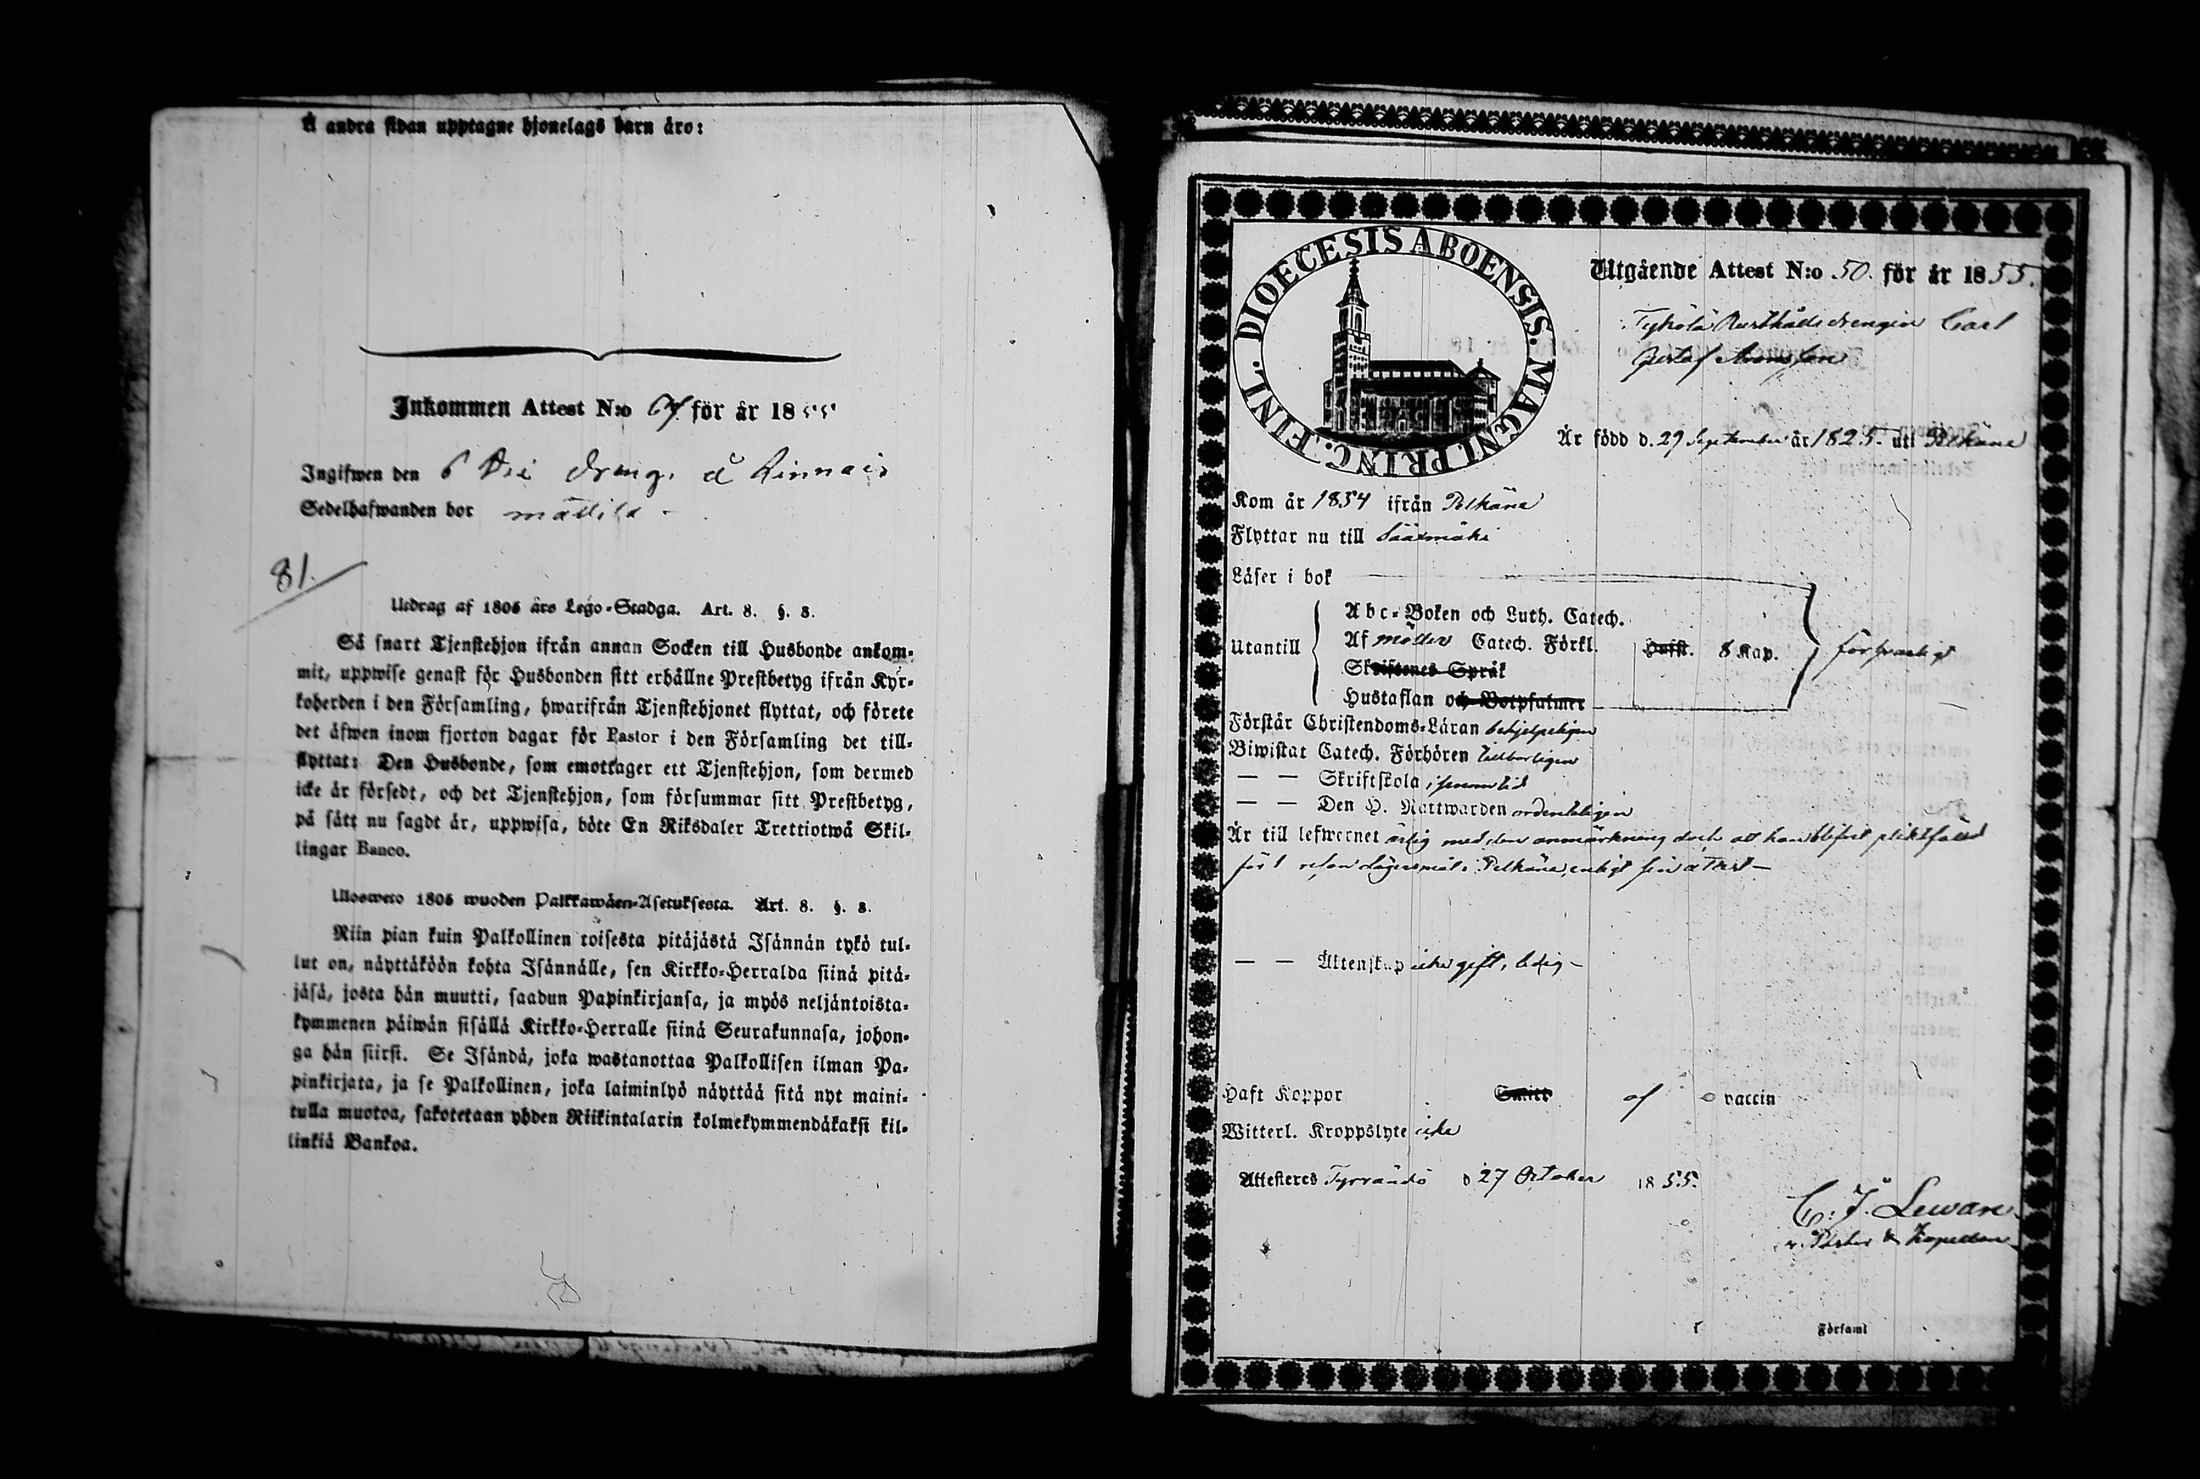 Å andra sidan upptagne hjonelags barn äro:
Inkommen Attest N:o 67 för år 1855
Ingifwen den 6 Dri dräng. å
Sedelhafwanden bor
81.
Utdrag af 1805 års Lego-Stadga. Art. 8. §. 3.
Så snart Tjenstehjon ifrån annan Socken till Husbonde ankom-
mit, uppwise genast för Husbonden sitt erhållne Prestbetyg ifrån Kyr-
koherden i den Församling, hwarifrån Tjenstehjonet flyttat, och förete
det äfwen inom fjorton dagar för Pastor i den Församling det till-
flyttat: Den Husbonde, som emottager ett Tjenstehjon, som dermed
icke är försedt, och det Tjenstehjon, som försummar sitt Prestbetyg,
på sätt nu sagdt är, uppwisa, böte En Riksdaler Trettiotwå Skil-
lingar Banco.
Uloswero 1805 wuoden Palkkawäen-Asetuksesta. Art. 8. §. 3.
Niin pian kuin Palkollinen toisesta pitäjästä Isännän tykö tul-
lut on, näyttäköön kohta Isännälle, sen Kirkko-Herralda siinä pitä-
jäsä, josta hän muutti, saadun Papinkirjansa, ja myös neljäntoista-
kymmenen päiwän sisällä Kirkko-Herralle siinä Seurakunnasa, johon-
ga hän siirsi. Se Isändä, joka wastanottaa Palkollisen ilman Pa-
pinkirjata, ja se Palkollinen, joka laiminlyö näyttää sitä nyt maini-
tulla muotoa, sakotetaan yhden Riikintalarin kolmekymmendäkaksi kil-
linkiä Bankoa.
DIOECESIS ABOENSIS. MAGNI PRINC. FINL.
Utgående Attest N:o 50. för år 1855.
Rusthålls drengen Carl
Gustaf
Är född d. 29 September år 1825. uti Pelkäne
Kom år 1854 ifrån Pelkäne
Flyttar nu till Sääxmäki
Läser i bok
Abc-Boken och Luth. Catech.
Utantill Af Möllers Catech. Förkl. Huist. 8 Kap. försvarligt
Skriftenes Språk
Hustaflan och Botpsalmer
Förstår Christendoms-Läran behjelpeligen
Biwistat Catech. Förhören tillbörligen
— — Skriftskola i sinom tid
— — Den H. Nattwarden ordenteligen
Är till lefwernet ärlig med den anmärkning dock att han blifvit pliktfälld
för 1 resan lägersmål i Pelkäne, enligt sin attest —
— — Äktenskap icke gift, ledig —
Haft Koppor Smitt af vaccin
Witterl. Kroppslyte icke
Attesteres Tyrvändö d 27 October 1855.
C. J. Lewan
v. Pastor & Kapellan
i Församl